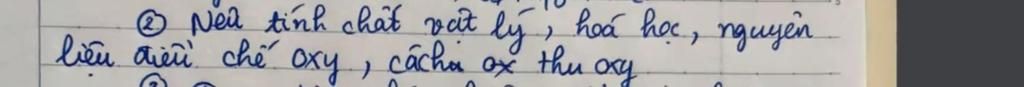 ② Nêu tính chất vật lý, hoá học, nguyên
liệu điều chế oxy, cách ox thu oxy